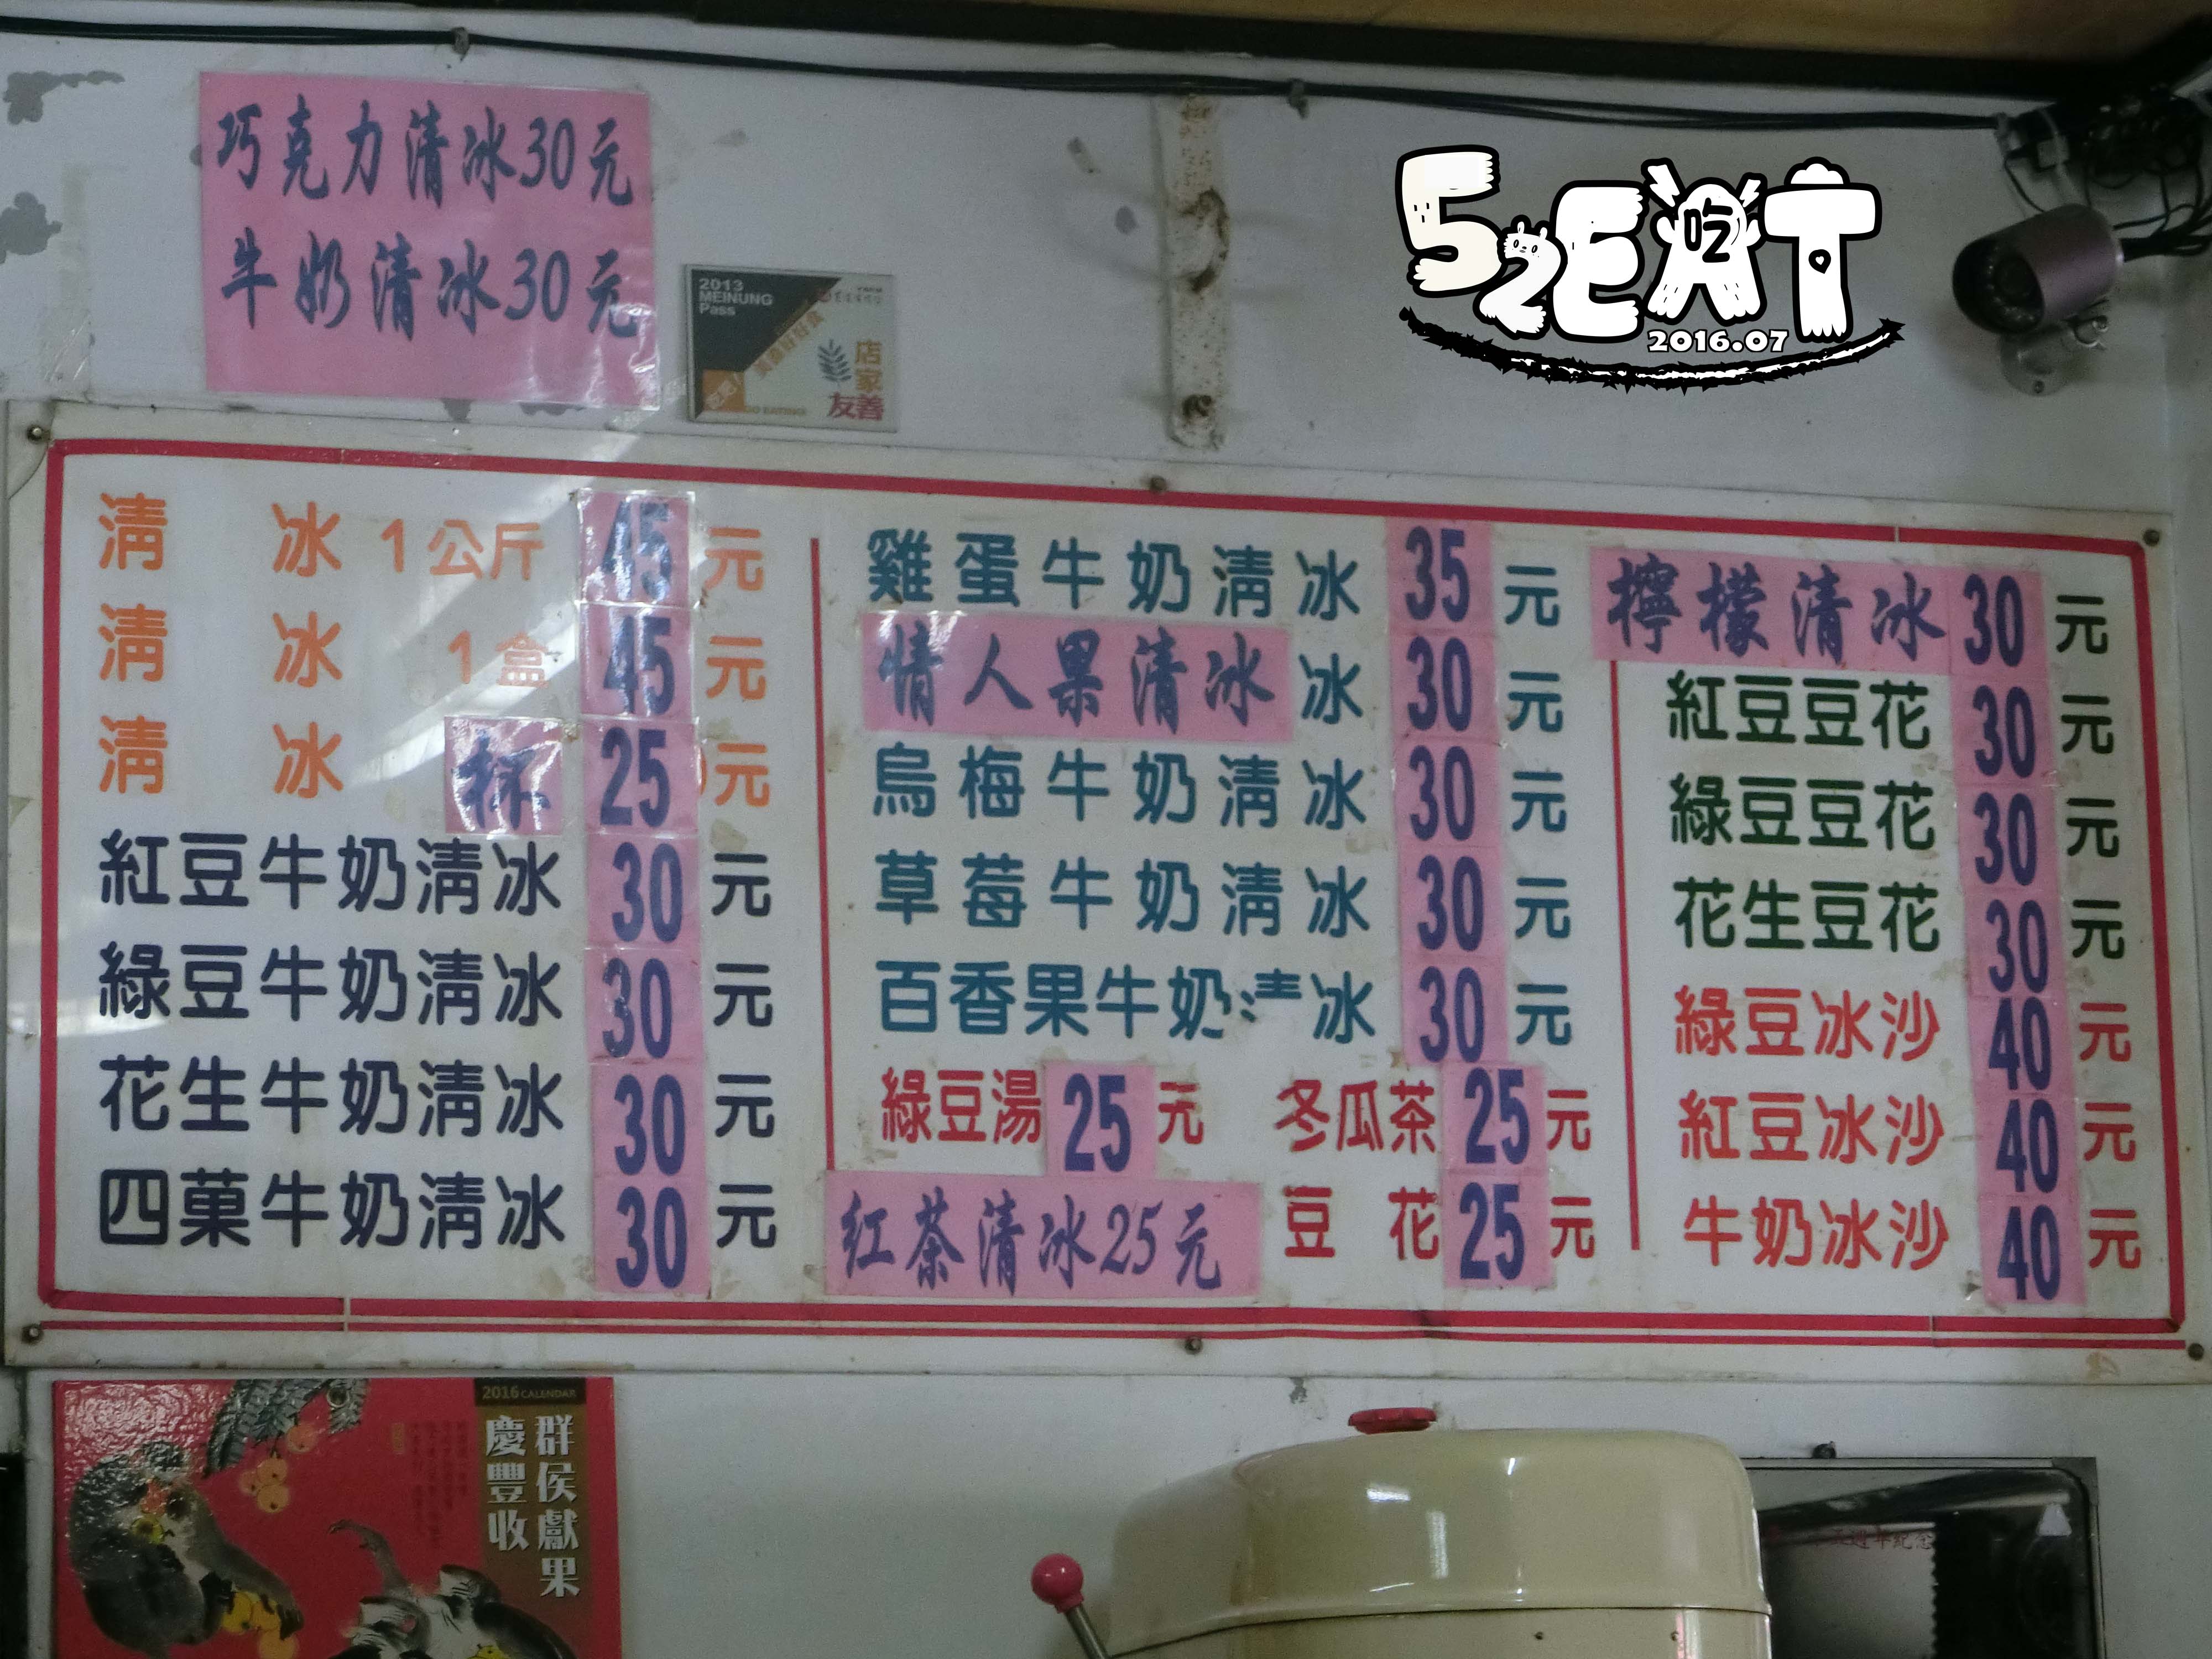 巧克力清冰30元
牛奶清冰30元
2013
MEINUNG
Pass
店家
友善
GO EATING
52EAT
吃
2016.07
清冰1公斤45元
清冰1盒45元
清冰杯25元
紅豆牛奶清冰30元
綠豆牛奶清冰30元
花生牛奶清冰30元
四菓牛奶清冰30元
雞蛋牛奶清冰35元
情人果清冰冰30元
烏梅牛奶清冰30元
草莓牛奶清冰30元
百香果牛奶清冰30元
綠豆湯25元 冬瓜茶25元
红茶清冰25元 豆花25元
檸檬清冰30元
紅豆豆花30元
綠豆豆花30元
花生豆花30元
綠豆冰沙40元
紅豆冰沙40元
牛奶冰沙40元
2016 CALENDAR
群侯獻果
慶豐收